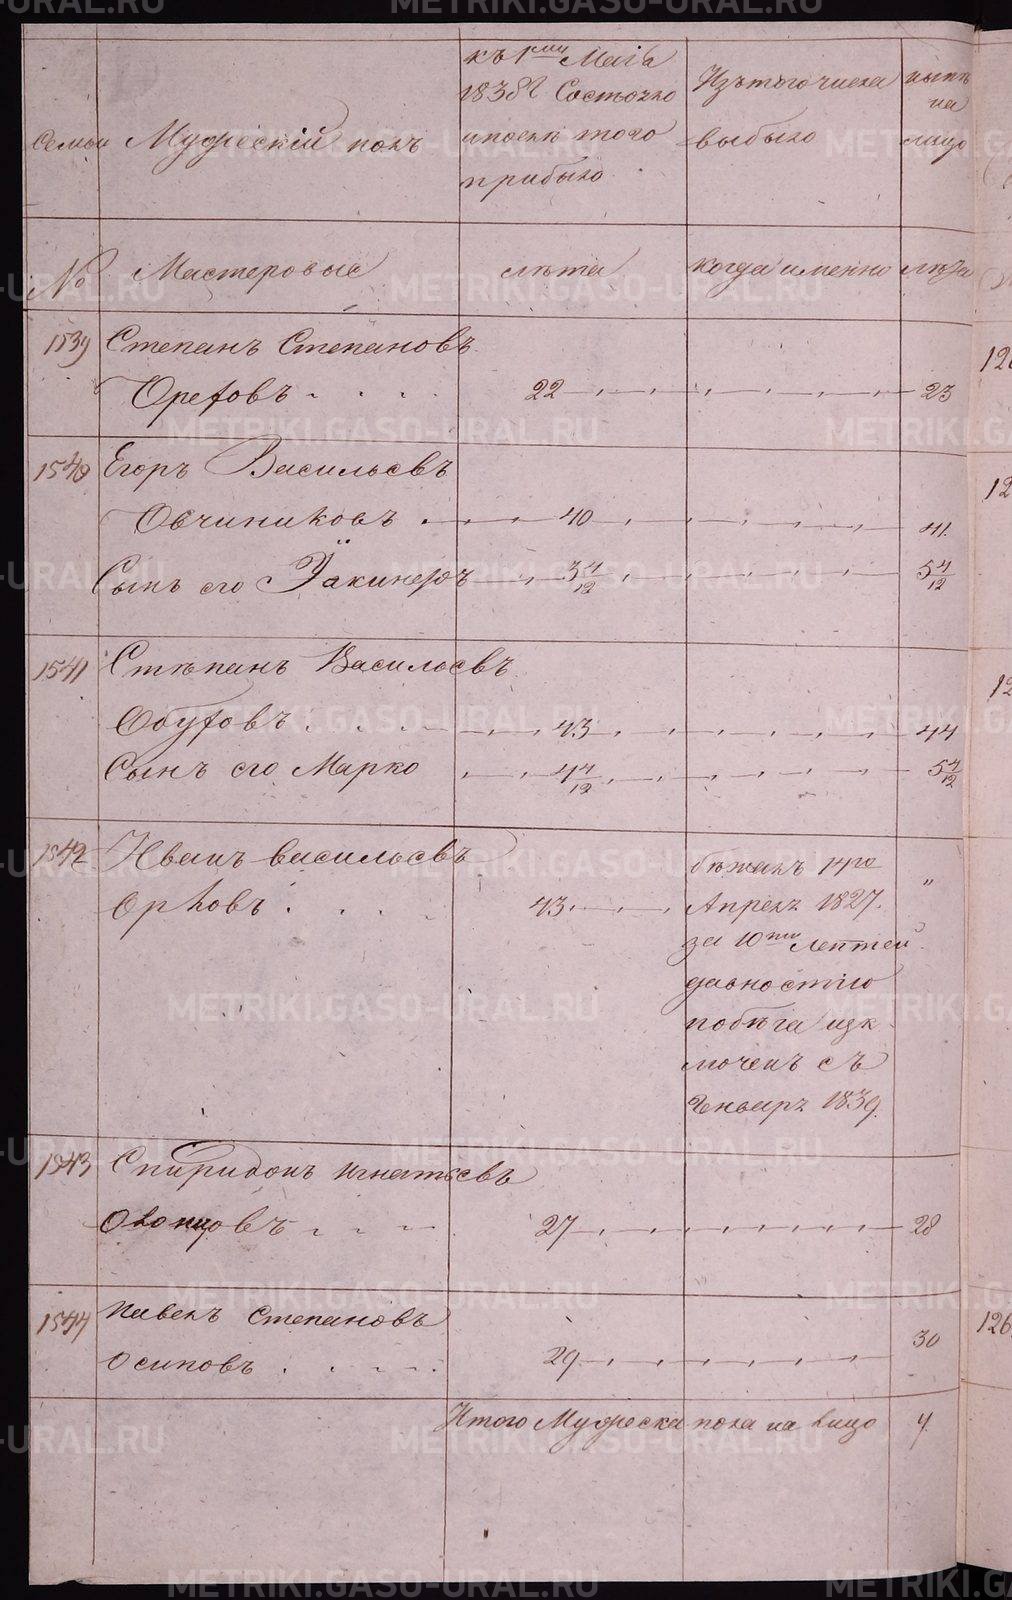 Семьи Мужескій полъ
къ 1му Маія
1838г Состояло
и послѣ того
прибыло
Изъ того числа
выбыло
нынѣ
на
лицо
№ Мастеровые лѣта когда именно лѣта
1539 Степанъ Степановъ
Орефовъ 22 23
1540 Егоръ Васильевъ
Овчиниковъ 40 41
Сынъ его Іакинфъ 3 4/12 5 4/12
1541 Стѣпанъ Васильевъ
Обуховъ 43 44
Сынъ его Марко 4 4/12 5 4/12
1542 Иванъ Васильевъ
Орловъ 43 "
бѣжалъ 14го
Апрелѣ 1827.
за 10ти лѣтней
давностію
побѣга изк
лючѣнъ съ
Генваря 1839.
1543 Спиридонъ Игнатьевъ
27 28
1544 Павелъ Степановъ
Осиповъ 29 30
Итого Мужеска пола на лицо 7.
126
METRIKI.GASO-URAL.RU